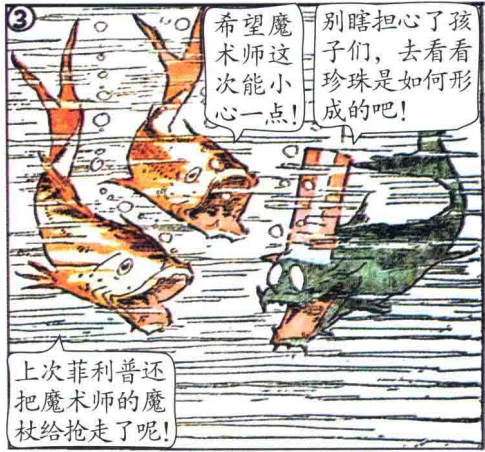 ③
希望魔
术师这
次能小
心一点！
别瞎担心了孩
子们，去看看
珍珠是如何形
成的吧！
上次菲利普还
把魔术师的魔
杖给抢走了呢！